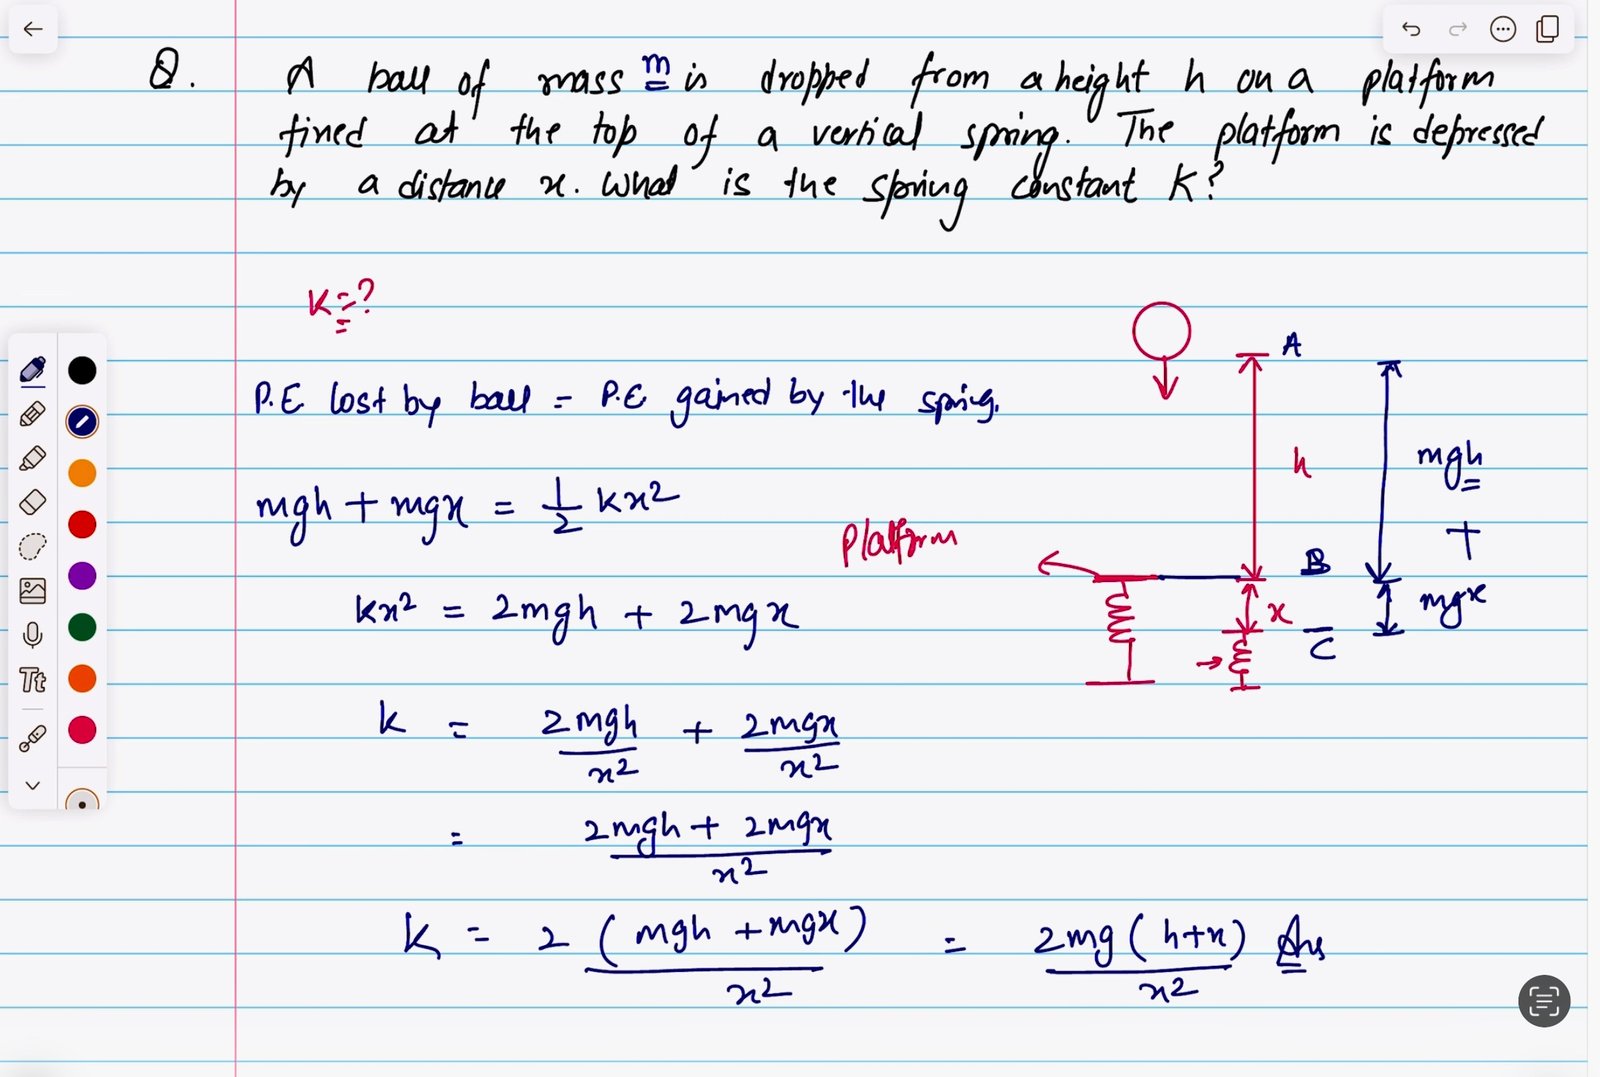 Q. A ball of mass m is dropped from a height h on a platform
fined at the top of a vertical spring. The platform is depressed
by a distance x. What is the spring constant K?
K=?
A
P.E lost by ball = P.E gained by the spring.
h
mgh
mgh + mgx = 1/2 kx²
Platform
+
B
kx² = 2mgh + 2mgx
x
mgx
C
k = 2mgh/x² + 2mgx/x²
= 2mgh + 2mgx/x²
K = 2 (mgh + mgx)/x² = 2mg (h+x)/x² Ans
Tt